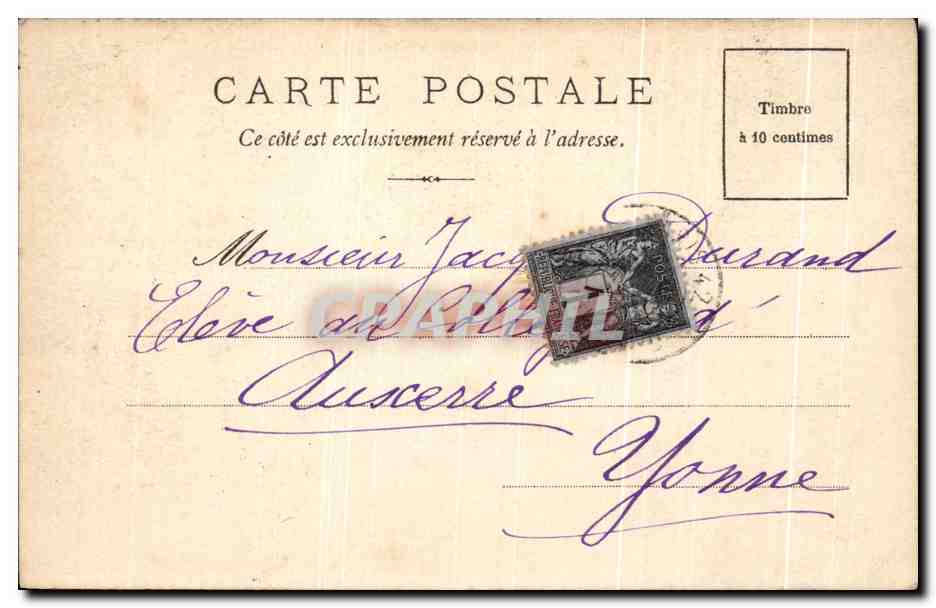 CARTE POSTALE
Ce côté est exclusivement réservé à l'adresse.
Timbre
à 10 centimes
Monsieur Jacq Durand
Elève au Coll d'
Auxerre
Yonne
POSTES
CPAPHIL